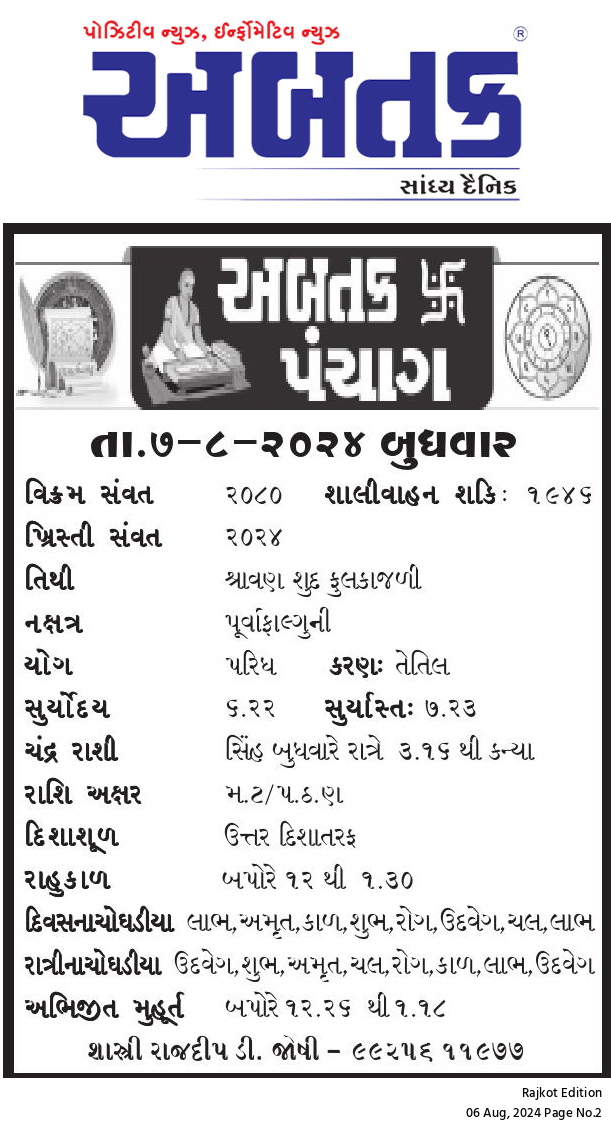 પોઝિટીવ ન્યુઝ, ઈન્ફોર્મેટિવ ન્યુઝ
અબતક ®
સાંધ્ય દૈનિક
અબતક 卐
પંચાગ
તા.૭-૮-૨૦૨૪ બુધવાર
વિક્રમ સંવત ૨૦૮૦ શાલીવાહન શકિ: ૧૯૪૬
ખ્રિસ્તી સંવત ૨૦૨૪
તિથી શ્રાવણ શુદ ફુલકાજળી
નક્ષત્ર પૂર્વાફાલ્ગુની
યોગ પરિધ કરણ: તેતિલ
સુર્યોદય ૬.૨૨ સુર્યાસ્ત: ૭.૨૩
ચંદ્ર રાશી સિંહ બુધવારે રાત્રે ૩.૧૬ થી કન્યા
રાશિ અક્ષર મ.ટ/પ.ઠ.ણ
દિશાશૂળ ઉત્તર દિશાતરફ
રાહુકાળ બપોરે ૧૨ થી ૧.૩૦
દિવસનાચોઘડીયા લાભ,અમૃત,કાળ,શુભ,રોગ,ઉદવેગ,ચલ,લાભ
રાત્રીનાચોઘડીયા ઉદવેગ,શુભ,અમૃત,ચલ,રોગ,કાળ,લાભ,ઉદવેગ
અભિજીત મુહૂર્ત બપોરે ૧૨.૨૬ થી ૧.૧૮
શાસ્ત્રી રાજદીપ ડી. જોષી - ૯૯૨૫૬ ૧૧૯૭૭
Rajkot Edition
06 Aug, 2024 Page No.2